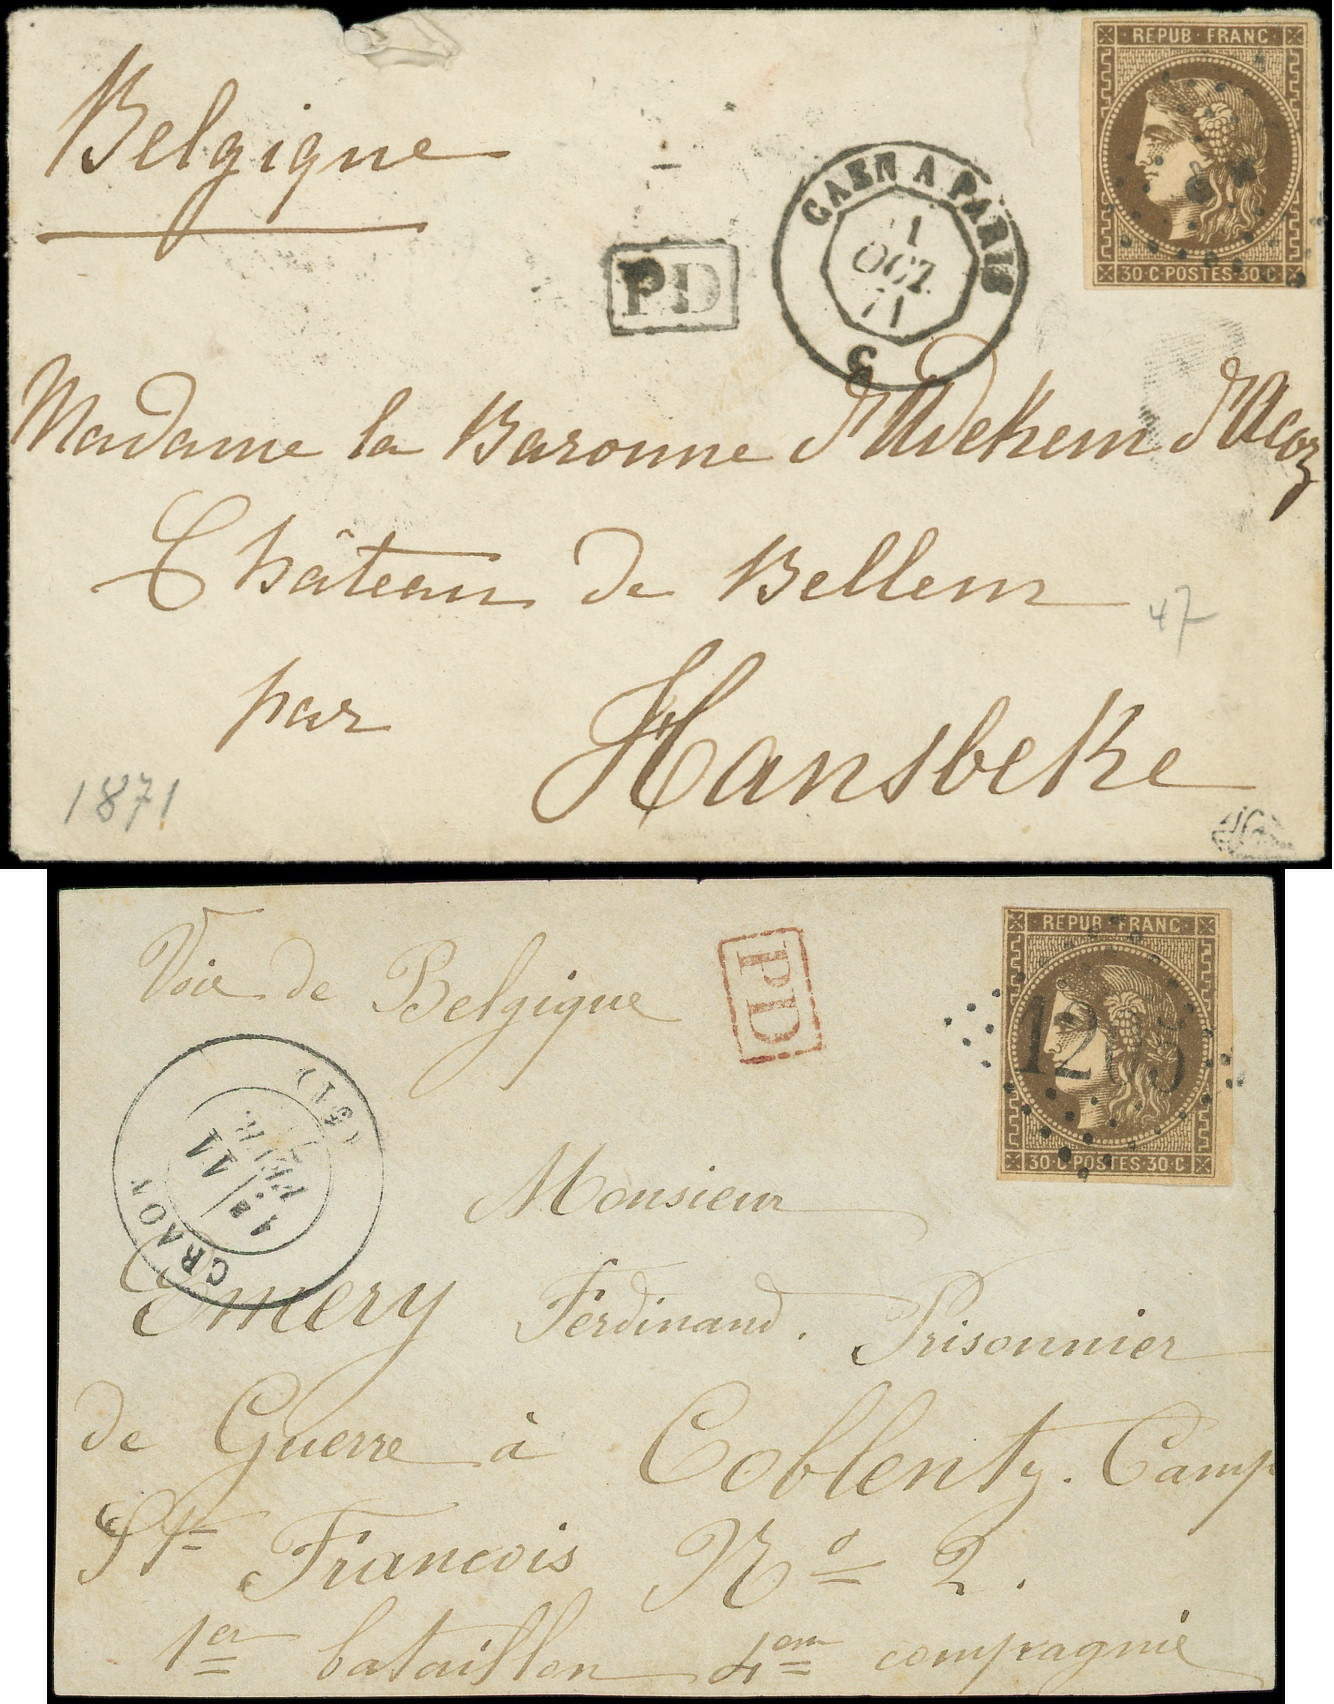 Belgique
REPUB · FRANC
30 · C · POSTES · 30 · C
PD
CAEN A PARIS
1
OCT.
71
C
Madame la Baronne d'Udekem d'Acoz
Château de Bellem
47
par
Hansbeke
1871
Voie de Belgique
PD
REPUB · FRANC
1205
30 · C · POSTES · 30 · C
CRAON (51)
1e/ 11
FEVR.
Monsieur
Emery Ferdinand. Prisonnier
de Guerre à Coblentz. Camp
St Francois No 2.
1er bataillon 4em compagnie